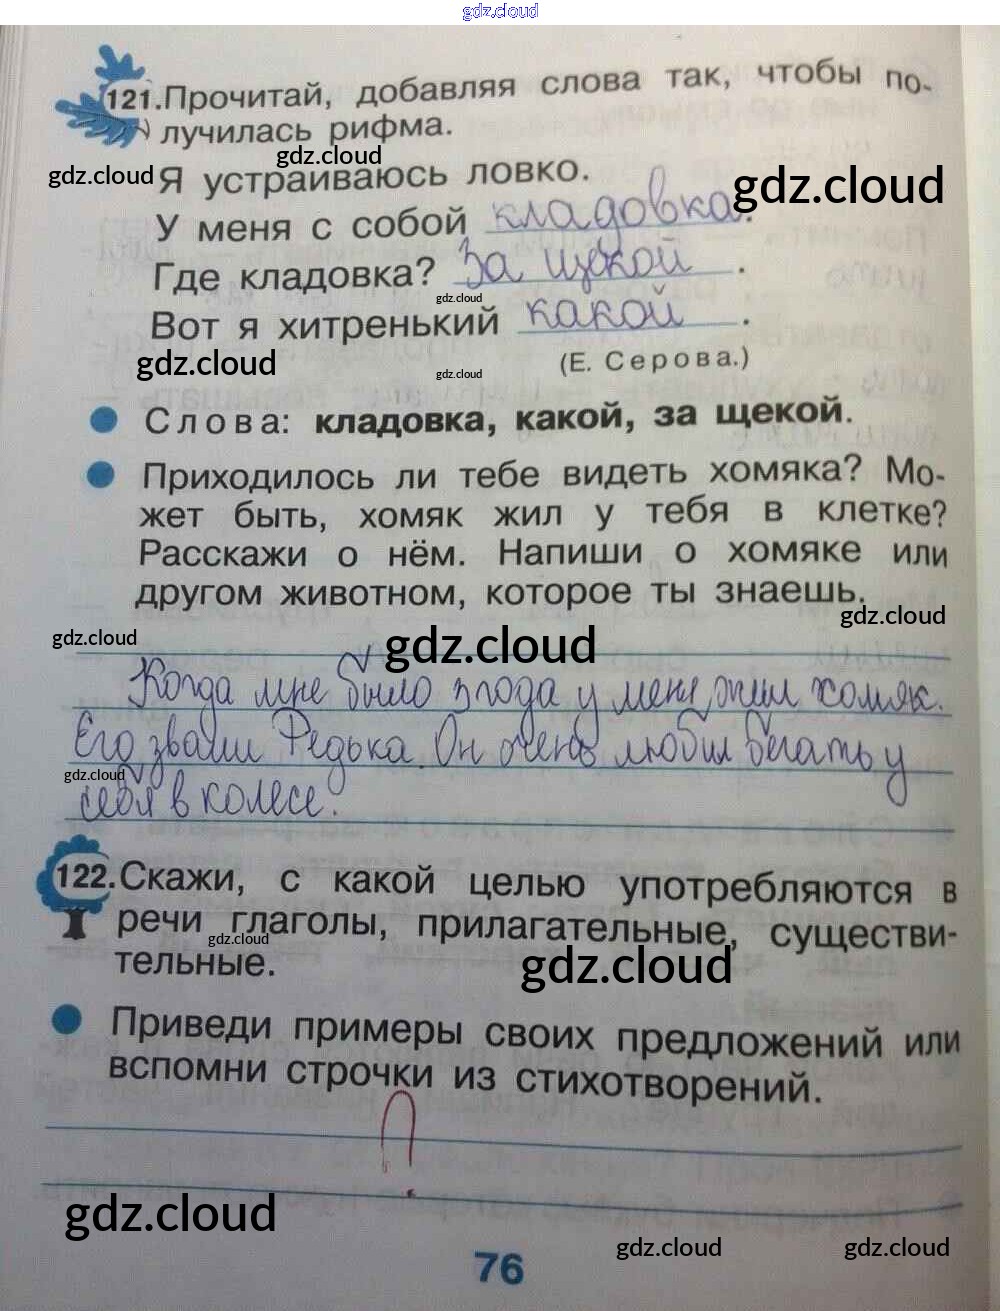 gdz.cloud
121. Прочитай, добавляя слова так, чтобы по-
лучилась рифма.
gdz.cloud
gdz.cloud
Я устраиваюсь ловко.
gdz.cloud
У меня с собой кладовка.
Где кладовка? За щекой.
gdz.cloud
Вот я хитренький какой.
(Е. Серова.)
gdz.cloud
gdz.cloud
Слова: кладовка, какой, за щекой.
Приходилось ли тебе видеть хомяка? Мо-
жет быть, хомяк жил у тебя в клетке?
Расскажи о нём. Напиши о хомяке или
другом животном, которое ты знаешь.
gdz.cloud
gdz.cloud
gdz.cloud
Когда мне было 3 года у меня жил хомяк.
Его звали Редька. Он очень любил бегать у
gdz.cloud
себя в колесе.
122. Скажи, с какой целью употребляются в
речи глаголы, прилагательные, существи-
тельные.
gdz.cloud
gdz.cloud
Приведи примеры своих предложений или
вспомни строчки из стихотворений.
?
gdz.cloud
76
gdz.cloud
gdz.cloud